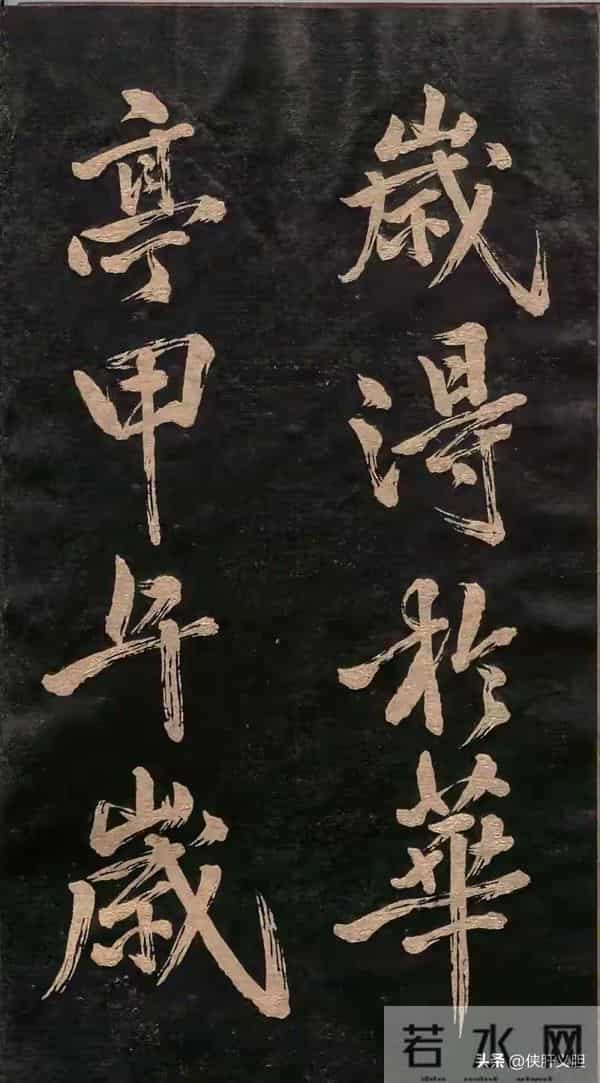 歲得於華
亭甲午歲
若水网
头条 @侠肝义胆